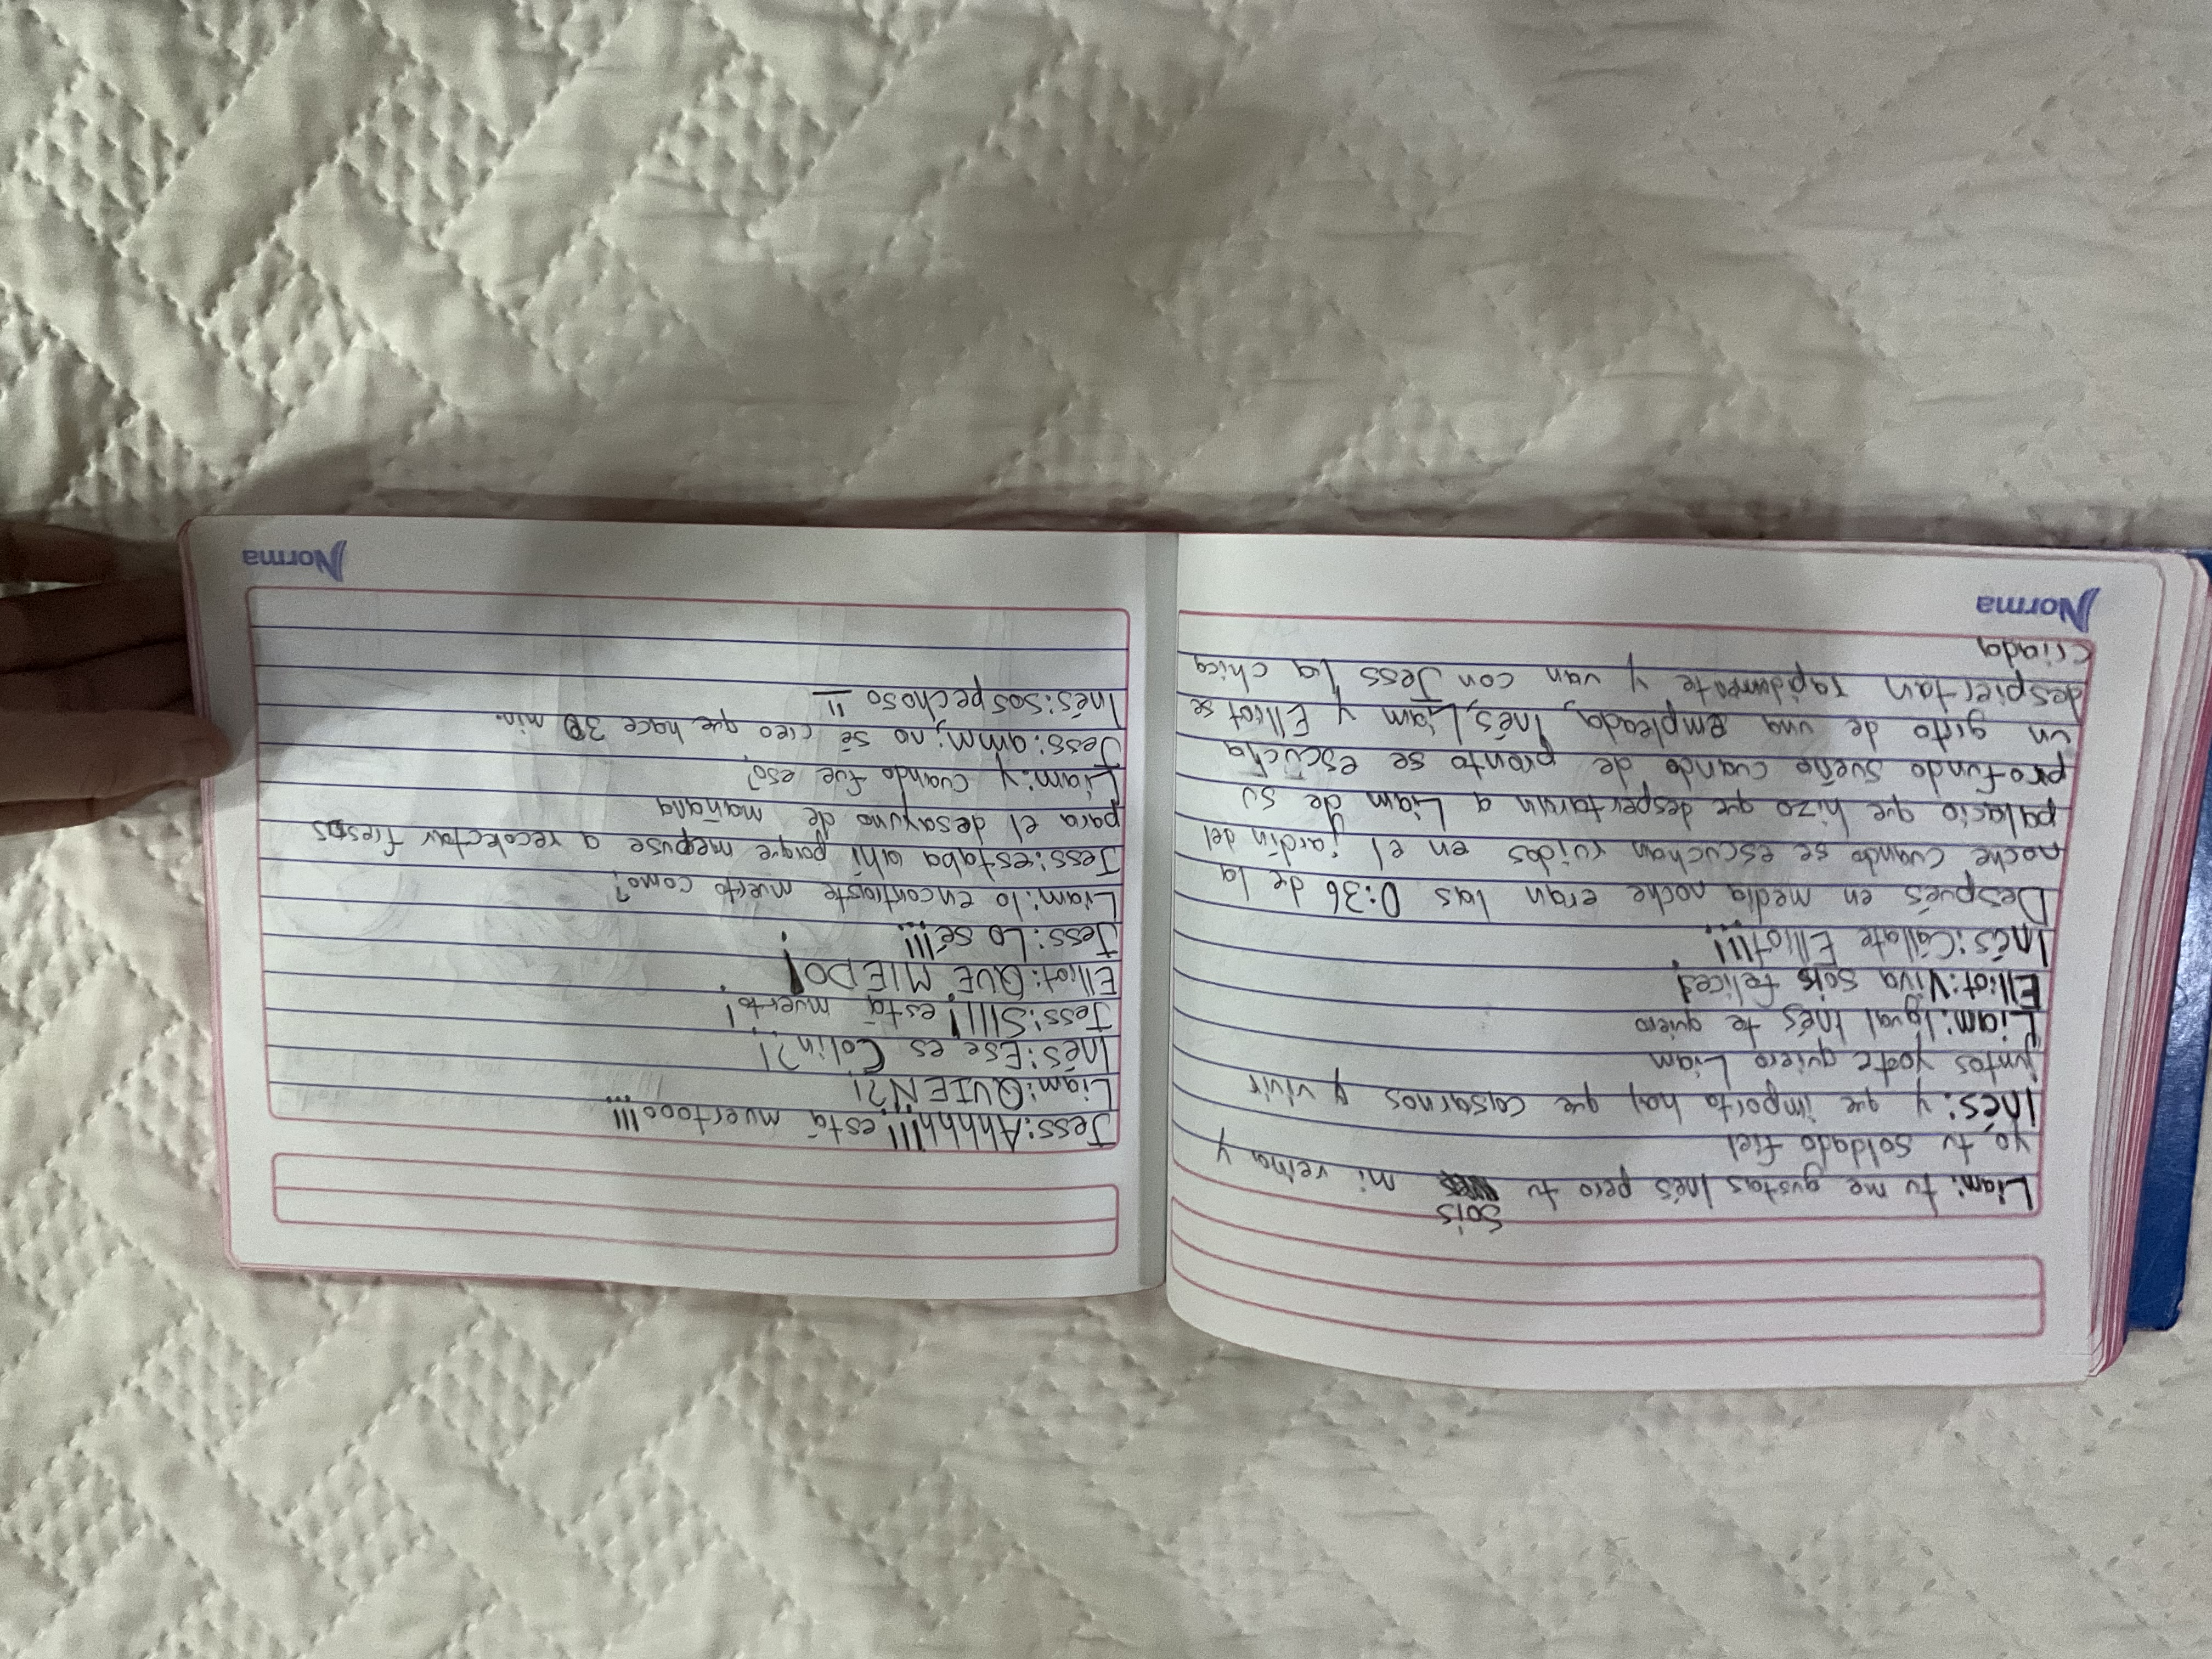 Liam: tu me gustas Inés pero tu sois mi reina y
yo tu soldado fiel
Inés: y que importa hay que casarnos y vivir
juntos yo te quiero Liam
Liam: Igual Inés te quiero
Elliot: Viva sois felices!
Inés: Cállate Elliot!!!
Después en media noche eran las 0:36 de la
noche cuando se escuchan ruidos en el jardín del
palacio que hizo que despertarán a Liam de su
profundo sueño cuando de pronto se escucha
un grito de una empleada, Inés, Liam y Elliot se
despiertan rapidamente y van con Jess la chica
criada
Norma
Jess: Ahhhh!!! está muertooo!!!
Liam: QUIEN?!
Inés: Ese es Colin?!
Jess: SIII! está muerto!
Elliot: QUE MIEDO!
Jess: Lo sé!!!
Liam: lo encontraste muerto como?
Jess: estaba ahí porque mepuse a recolectar fresas
para el desayuno de mañana
Liam: y cuando fue eso?
Jess: amm; no sé creo que hace 30 min.
Inés: sospechoso
Norma